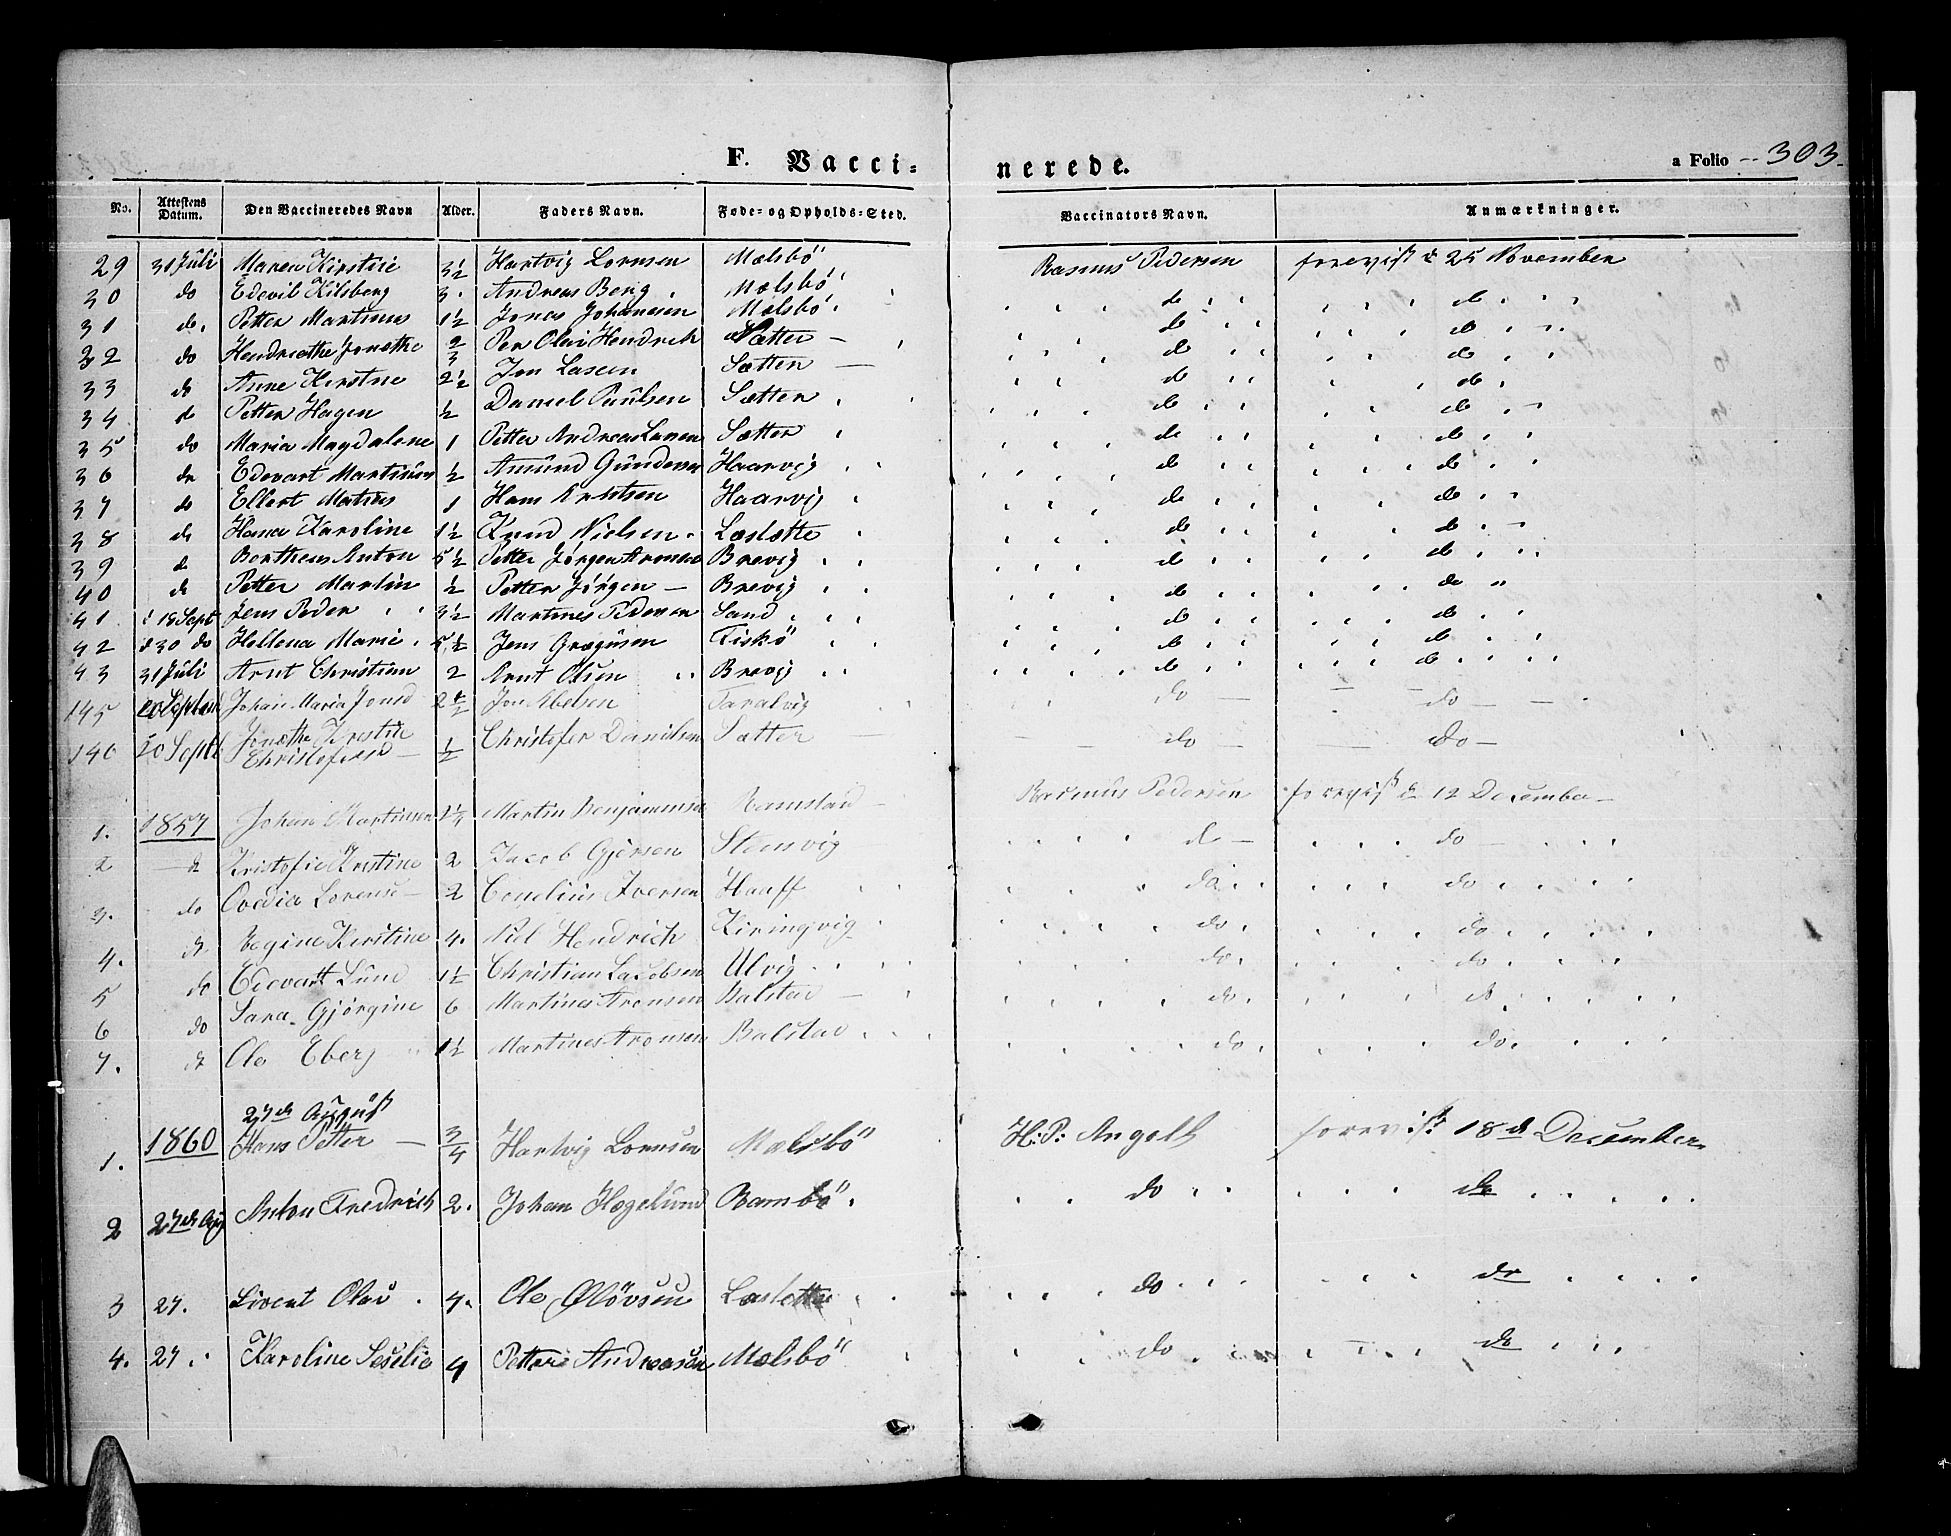 F. Vacci- nerede. a Folio 303.
No. Attestens Datum. Den Vaccineredes Navn Alder. Faders Navn. Fode- og Opholds-Sted. Vaccinators Navn. Anmærkninger.
29 31 Juli Maren Kirstie 3½ Hartvig Lornsen Mælsbö Rasmus Pedersen forevist d 25 November
30 do Edevil Kilsberg 3 Andreas Berg Mælsbö do do
31 do. Petter Martinus 1½ Jonas Johansen Mælsbö do do
32 do Hendriethe Jonethe 2/3 Per Olai Hendrich Sætter do do
33 do Anne Kirstne 2½ Jon Lasen Sætten do do
34 do Petter Hagen ½ Daniel Paulsen Sætter do do
35 do Maria Magdalene 1 Petter Andreas Larsen Sætter do do
36 do Edevart Martinus ½ Amund Gundersen Haarvig do do
37 do Ellert Matius 1 Hans Kristsen Haarvig do do
38 do Hana Karoline 1½ Knud Nielsen Læslætte do do
39 do Bertheus Anton 5½ Petter Jørgen Aronsen Brevig do do
40 do Petter Martin ½ Petter Jörgen Brevig do do
41 d 18 Sept Jens Peder 3½ Martines Pedersen Sand do do
42 d 30 do Hellena Marie 5½ Jens Gregusen Fiskö do do
43 31 Juli Arnt Christian 2 Arnt Olsen Brevig do do
145 20 Septem Johan Maria Jonsd 2½ Jon Abelsen Taralvig do do
146 20 Septb Jonethe Krestie ½ Christofer Danilsen Sætter do do
Christofersd
1. 1857 Johan Martinsen 1¼ Martin Benjaminsen Ramstad Rasmus Pedersen forevist d 12 December
2 d Kristofie Krestine 2 Jacob Gjersen Stensvig do do
3. do Ovedia Lorense 2 Conelius Iversen Haaff do do
4. do Regine Kirstine 4. Niel Hendrich Kiringvig do do
5 do Edevart Lund 1½ Christian Jacobsen Ulvig do do
6 do Sara Gjørgine 6 Martines Aronsen Balstad do do
7. do Ole Eberg 1½ Martines Aronsen Balstad do do
27de August
1. 1860 Hans Petter 3/4 Hartvig Lornsen Mælsbö H: P: Angell forevist 18de December
2 27de Aug Anton Fredrich 2. Johan Hægelund Rambö do do
3 27. Sivert Olai 4. Ole Olövsen Læslette do do
4. 27 Karoline Seselie 4 Petter Andreasen Mælsbö do do